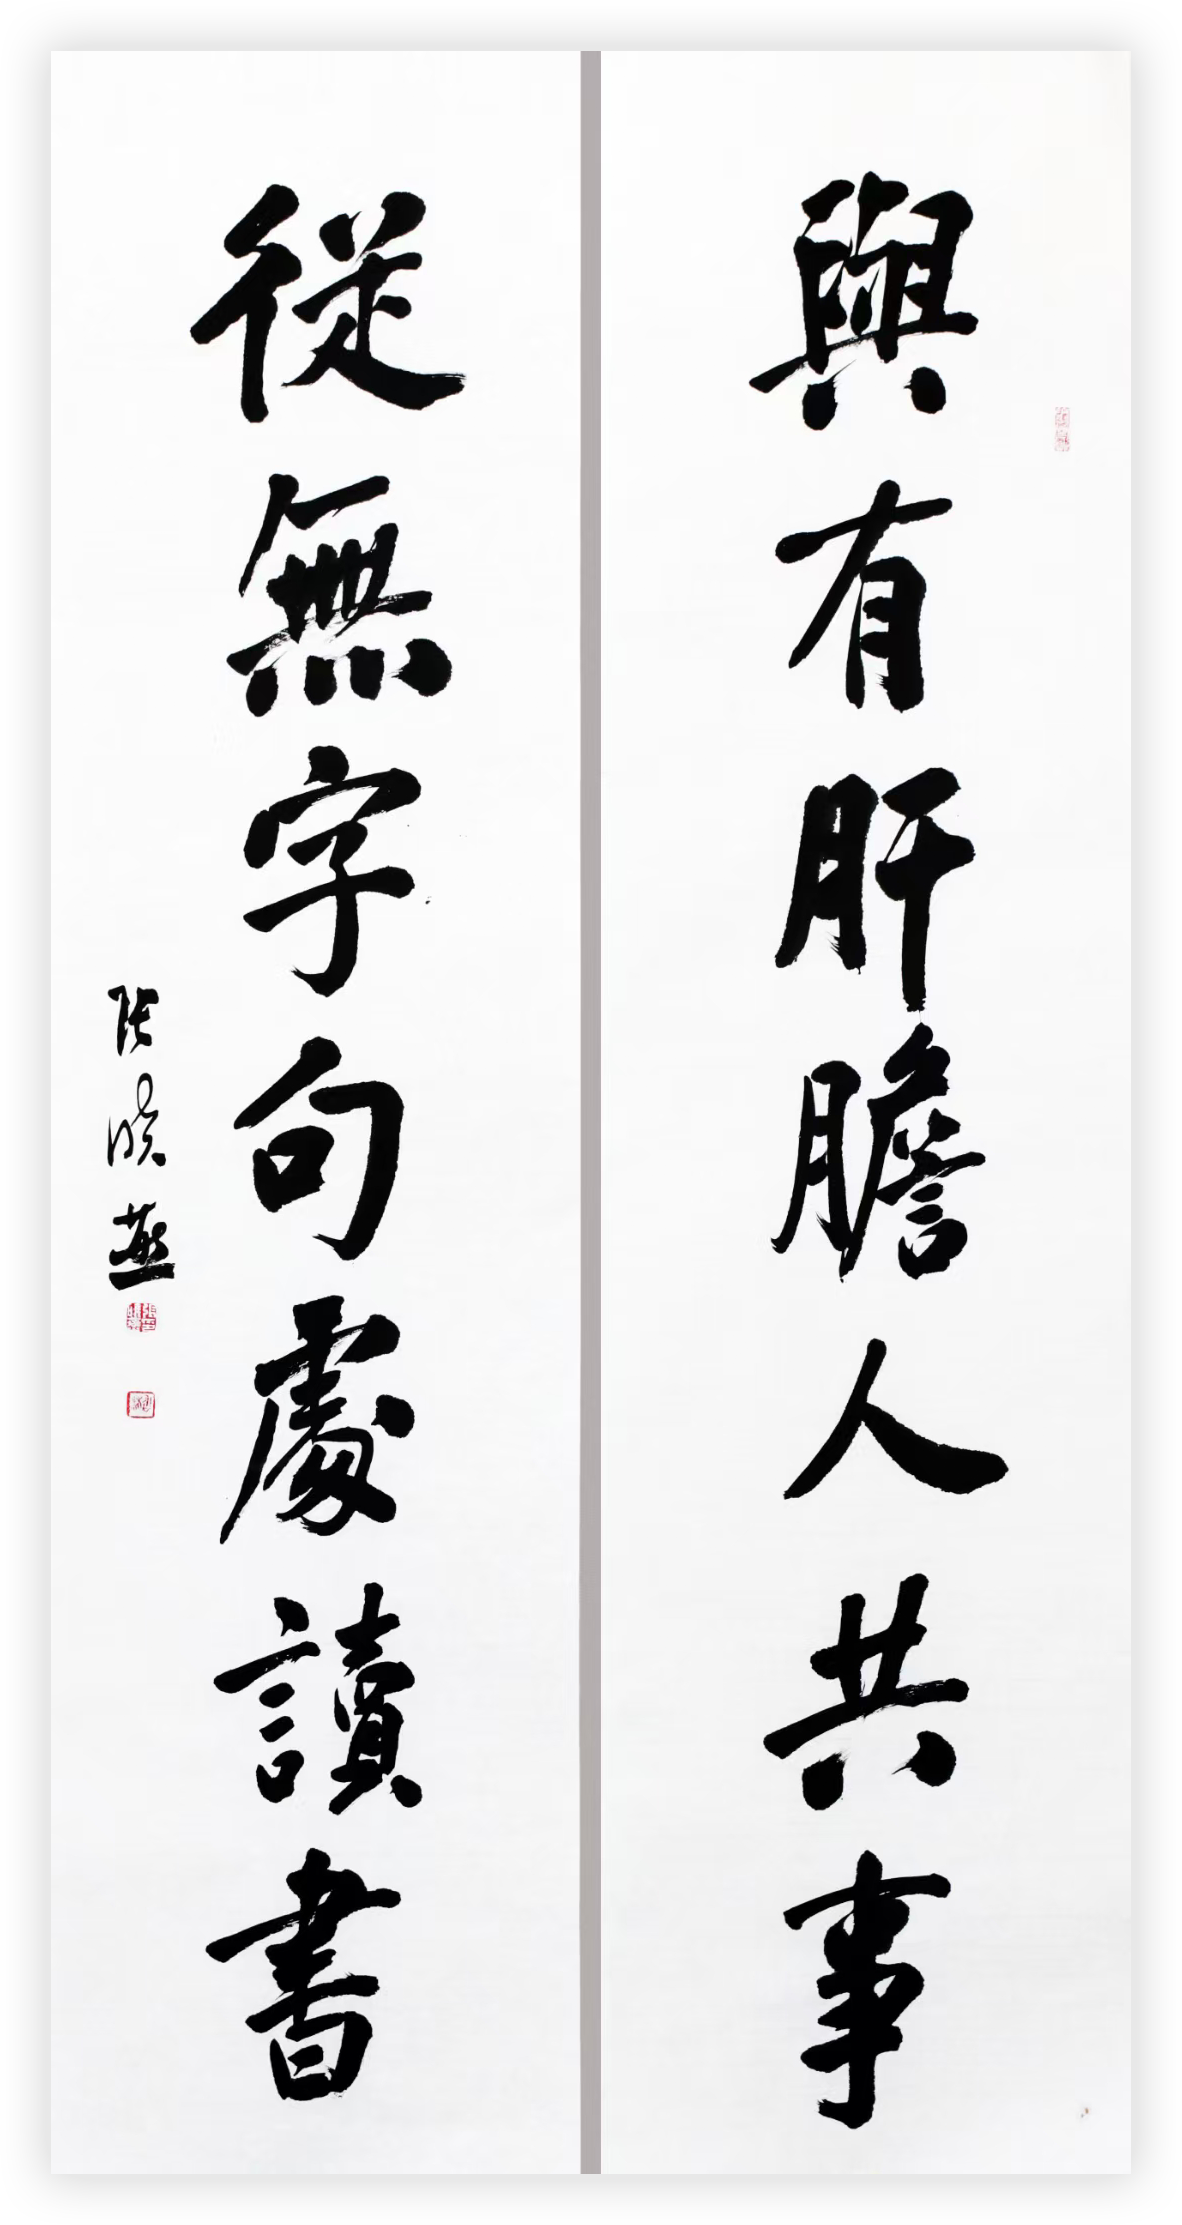 與有肝膽人共事
從無字句處讀書
张晓燕